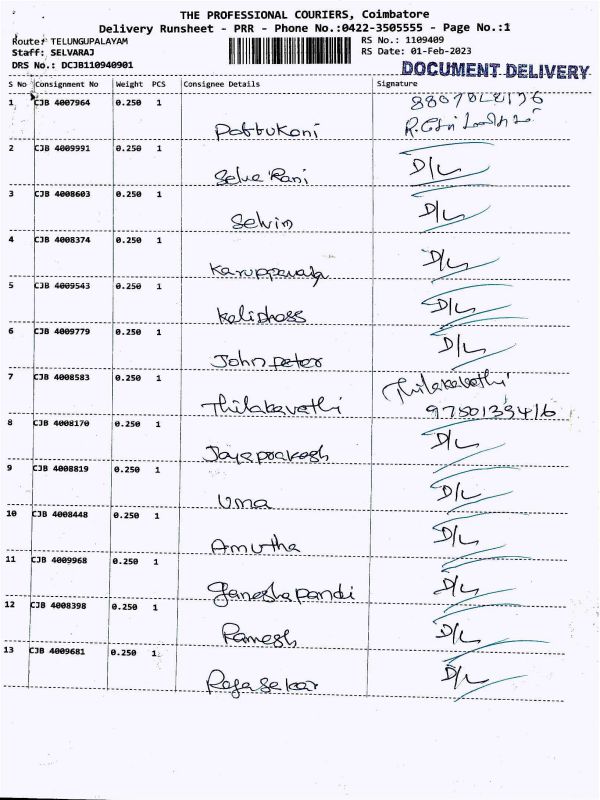 THE PROFESSIONAL COURIERS, Coimbatore
Delivery Runsheet - PRR - Phone No.:0422-3505555 - Page No.:1
Route: TELUNGUPALAYAM
RS No.: 1109409
Staff: SELVARAJ
RS Date: 01-Feb-2023
DRS No.: DCJB110940901
DOCUMENT DELIVERY
S No Consignment No Weight PCS Consignee Details Signature
1 CJB 4007964 0.250 1
Pattukani
2 CJB 4009991 0.250 1 D/L
Selva Rani
3 CJB 4008603 0.250 1 D/L
Selvin
4 CJB 4008374 0.250 1 D/L
Karuppasamy
5 CJB 4009543 0.250 1 D/L
Kalidhass
6 CJB 4009779 0.250 1 D/L
John peter
7 CJB 4008583 0.250 1 Thilakavathi
Thilakavathi 9750133416
8 CJB 4008170 0.250 1 D/L
Jayaprakash
9 CJB 4008819 0.250 1 D/L
Uma
10 CJB 4008448 0.250 1 D/L
Amutha
11 CJB 4009968 0.250 1 D/L
Ganesha pandi
12 CJB 4008398 0.250 1 D/L
Ramesh
13 CJB 4009681 0.250 1 D/L
Rajasekar